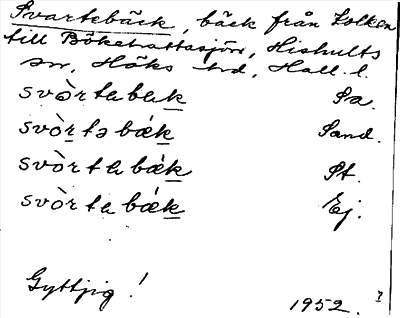 Svartebäck, bäck från Lolken
till Böketrattasjön, Hishults
sn, Höks hd, Hall. l.
svòrtəbæk Sa.
svòrtə bǽk Sand.
svòrtə bǽk St.
svòrtə bǽk Ej.
Gyttjig! 1952. I